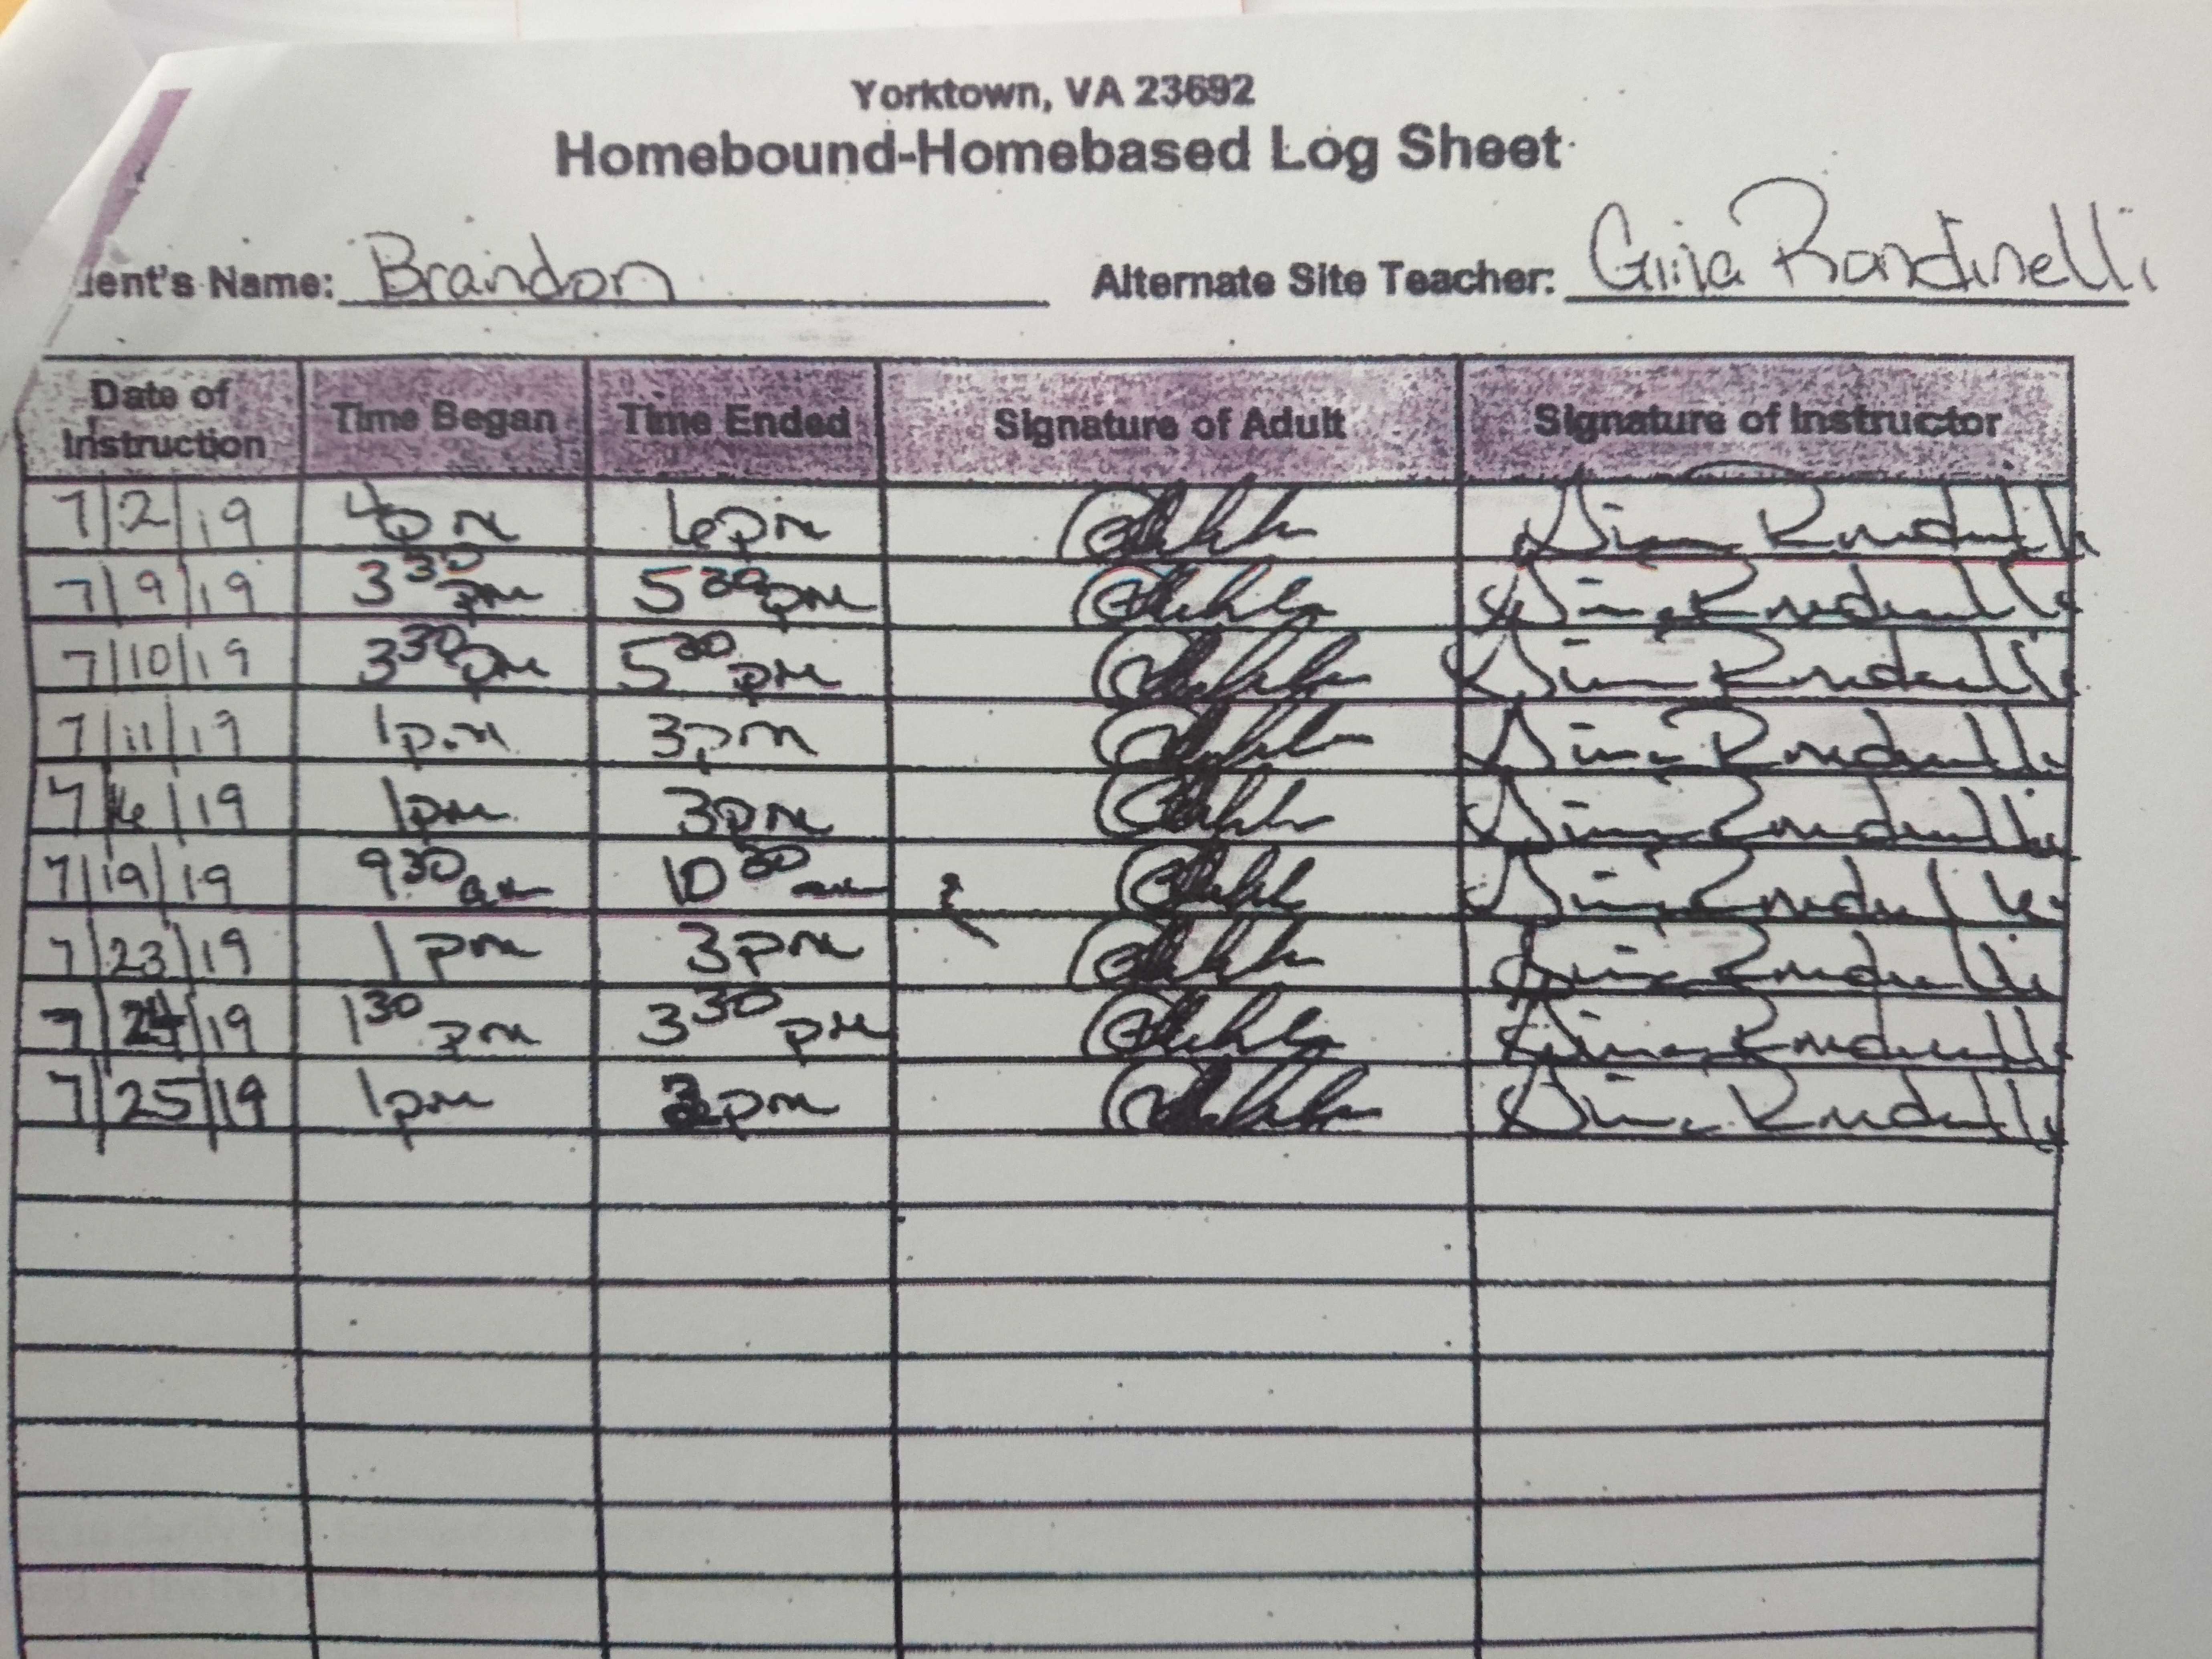 Yorktown, VA 23692
Homebound-Homebased Log Sheet
ent's Name: Brandon Alternate Site Teacher: Gina Rondinelli
Date of Instruction Time Began Time Ended Signature of Adult Signature of Instructor
7/2/19 4pm 6pm Gina Rondinelli
7/9/19 3 30 pm 5 30 pm Gina Rondinelli
7/10/19 3 30 pm 5 30 pm Gina Rondinelli
7/11/19 1pm 3pm Gina Rondinelli
7/16/19 1pm 3pm Gina Rondinelli
7/19/19 9 30 am 10 30 am Gina Rondinelli
7/23/19 1pm 3pm Gina Rondinelli
7/24/19 1 30 pm 3 30 pm Gina Rondinelli
7/25/19 1pm pm Gina Rondinelli